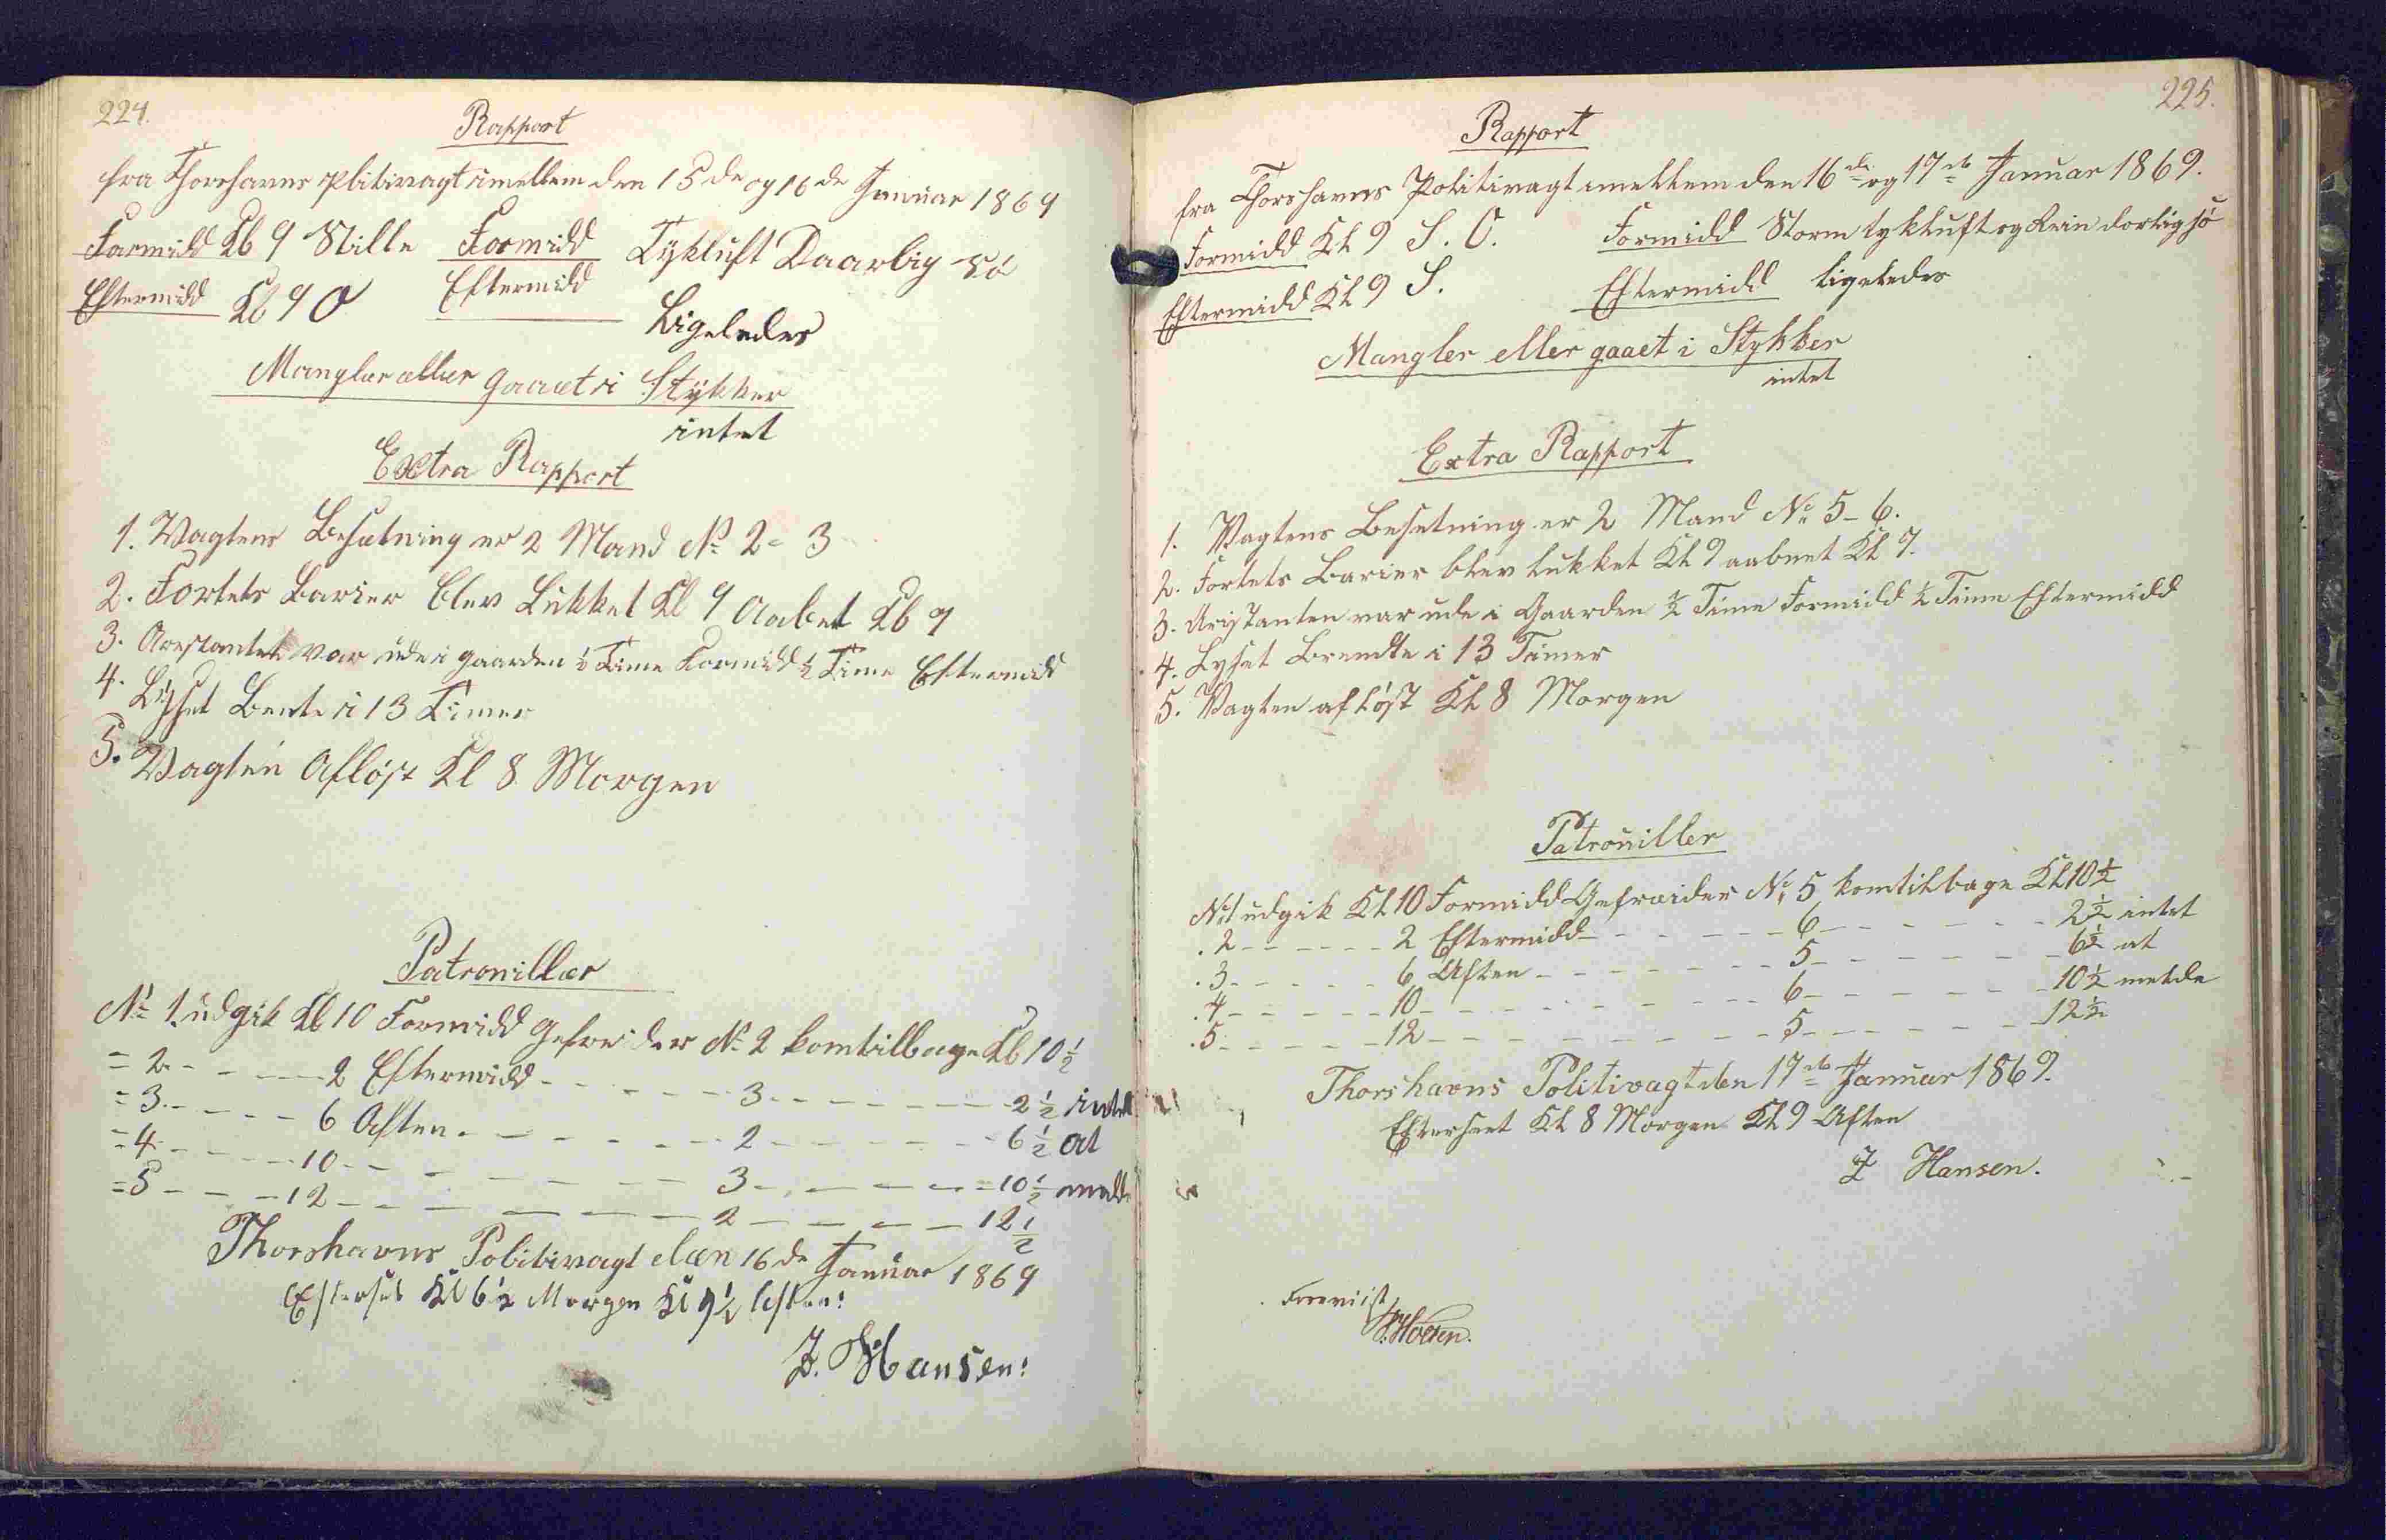 224.
Rapport
fra Thorshavns Plitivagt imellem den 15de og 16de Januar 1869
Formidd Kl 9 Stille Formidd Tykluft Daarlig Sö
Eftermidd Kl 9 O Eftermidd Ligeledes
Mangler eller gaaet i Stykker
intet
Extra Rapport
1. Vagtens Besætning er 2 Mand No 2 = 3
2. Fortets Barier blev Lukket Kl 9 Aabet Kl 7
3. Arestantet var ude i gaarden ½ Time Formidd ½ Time Eftermidd
4. Lyset Bente i 13 Timer
5. Vagten Afløst Kl 8 Morgen
Patrouiller
No 1. udgik Kl 10 Formidd Gefreider No 2 kom tilbage Kl 10½
= 2 - - - - 2 Eftermidd - - - - 3 - - - - 2½ intet
= 3 - - - - 6 Aften - - - - 2 - - - - 6½ at
= 4 - - - - 10 - - - - 3 - - - - 10½ melde
= 5 - - - 12 - - - - 2 - - - - 12½
Thorshavns Politivagt den 16de Januar 1869
Efterset Kl 6½ Morgen Kl 9½ Aften:
J. Hansen:
225.
Rapport
fra Thorshavns Politivagt imellem den 16de og 17de Januar 1869.
Formidd Kl 9 S. O. Formidd Storm tykluft og Rein dorlig sö
Eftermidd Kl 9 S. Eftermidd ligeledes
Mangler eller gaaet i Stykker
intet
Extra Rapport
1. Vagtens Besetning er 2 Mand No 5 - 6.
2. Fortets Barier blev lukket Kl 9 aabnet Kl 7.
3. Aristanten var ude i Gaarden ½ Time Formidd ½ Time Eftermidd
4. Lyset Brendte i 13 Timer
5. Vagten afløst Kl 8 Morgen
Patrouiller
No 1 udgik Kl 10 Formidd Gefreider No 5 kom tilbage Kl 10½
. 2 - - - - 2 Eftermidd - - - - 6 - - - - 2½ intet
. 3 - - - - 6 Aften - - - - 5 - - - - 6½ at
. 4 - - - - 10 - - - - 6 - - - - 10½ melde
. 5 - - - - 12 - - - - 5 - - - - 12½
Thorshavns Politivagt den 17de Januar 1869.
Efterseet Kl 8 Morgen Kl 9 Aften
J Hansen.
Foreviist